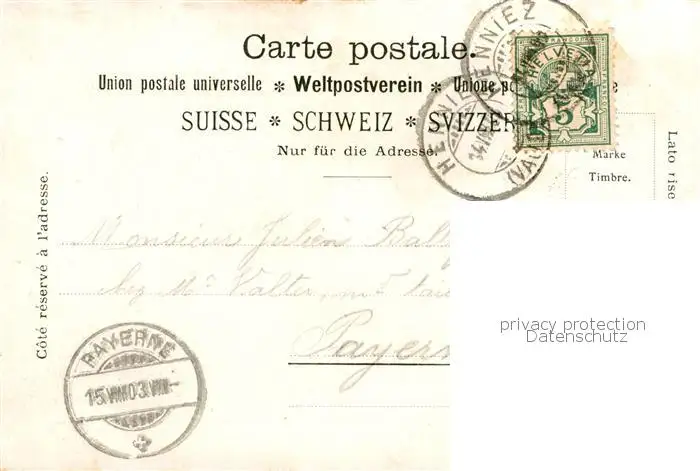 Carte postale.
Union postale universelle * Weltpostverein * Unione
SUISSE * SCHWEIZ * SVIZZER
Nur für die Adresse.
HENNIEZ
HENNIEZ
(VAUD)
FRANCO
HELVETIA
5
Marke
Timbre.
Lato rise
Côté réservé à l'adresse.
Monsieur Julien Ball
chez Mr Valter,
Payern
PAYERNE
15.VIII.03.VIII-
privacy protection
Datenschutz